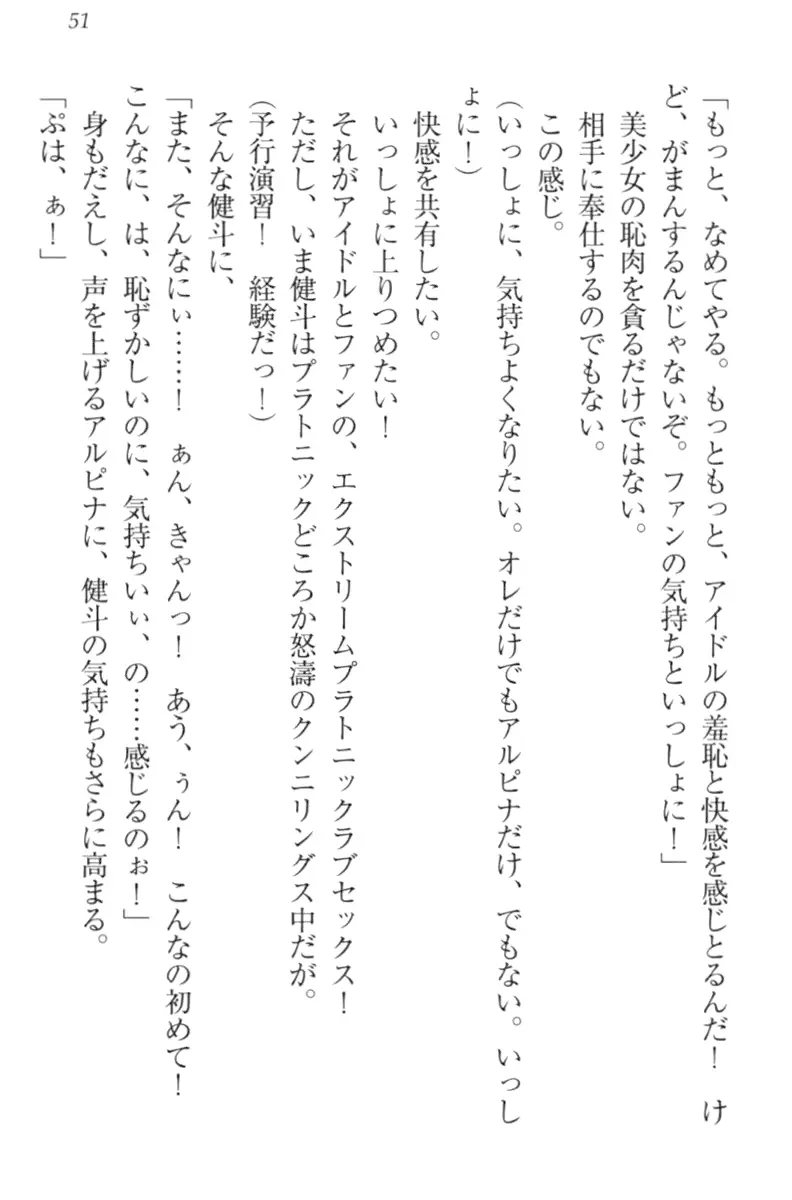 51
「もっと、なめてやる。もっともっと、アイドルの羞恥と快感を感じとるんだ！　け
ど、がまんするんじゃないぞ。ファンの気持ちといっしょに！」
美少女の恥肉を貪るだけではない。
相手に奉仕するのでもない。
この感じ。
（いっしょに、気持ちよくなりたい。オレだけでもアルピナだけ、でもない。いっし
ょに！）
快感を共有したい。
いっしょに上りつめたい！
それがアイドルとファンの、エクストリームプラトニックラブセックス！
ただし、いま健斗はプラトニックどころか怒濤のクンニリングス中だが。
（予行演習！　経験だっ！）
そんな健斗に、
「また、そんなにぃ……！　ぁん、きゃんっ！　あう、ぅん！　こんなの初めて！
こんなに、は、恥ずかしいのに、気持ちいぃ、の……感じるのぉ！」
身もだえし、声を上げるアルピナに、健斗の気持ちもさらに高まる。
「ぷは、ぁ！」